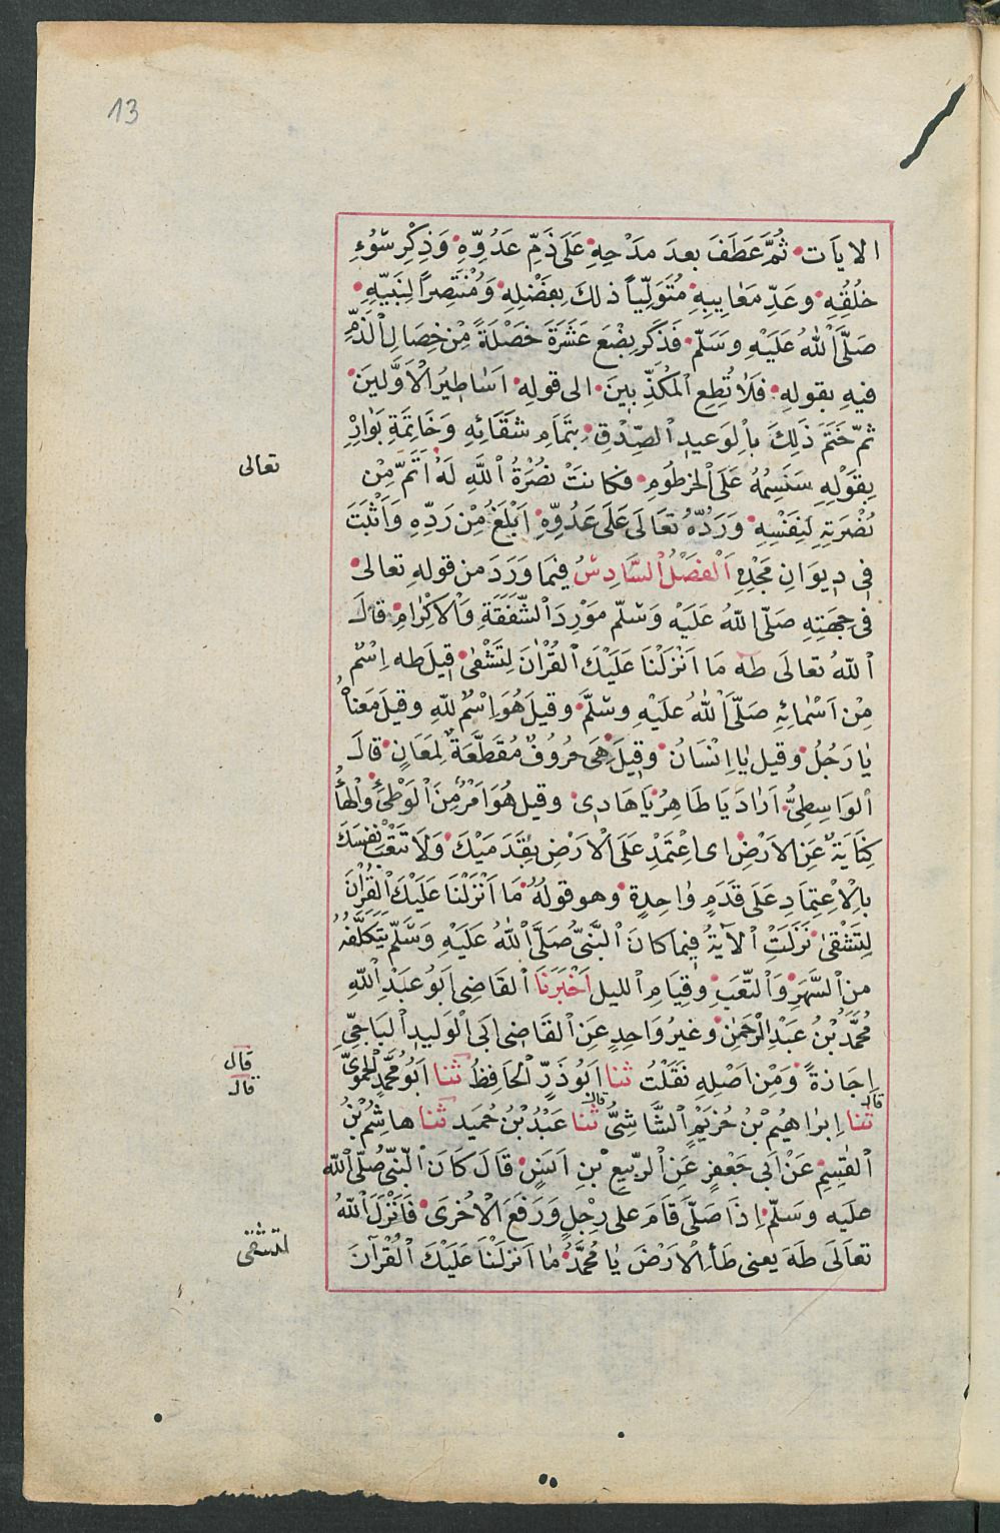 13
الايَات ثُمَّ عَطَفَ بعدَ مَدْحِهِ عَلَى ذَمِّ عَدُوِّهِ وَذِكْرِ سُوْءِ
خُلُقِهِ وعَدِّ مَعَايِبِهِ مُتَوَلِّيًا ذلكَ بِفَضْلِهِ وَمُنْتَصِرًا لِنَبِيِّهِ
صَلَّى اللهُ عَلَيْهِ وسَلَّم فَذَكَر بِضْعَ عَشَرَةَ خَصْلَةً مِنْ خِصَالِ الذَّمِّ
فيهِ بقولهِ فَلَا تُطِعِ المُكَذِّبينَ الى قولهِ اَسَاطِيرُ الْاَوَّلينَ
ثمّ خَتَمَ ذَلِكَ بالوَعيدِ الصِّدْقِ بتَمَامِ شَقَائِهِ وَخَاتِمَةِ بَوَارِهِ
بِقَوْلِهِ سَنَسِمُهُ عَلَى الْخرطُومِ فكانتْ نُصْرَةُ اللَّهِ لَهُ اَتَمَّ مِنْ
تعالى
نُصْرَتِهِ لِنَفْسِهِ وَرَدُّهُ تعَالَى عَلَى عَدُوِّهِ اَبْلَغَ مِنْ رَدِّهِ وَاَثْبَتَ
فى دِيوَانِ مَجْدِهِ اَلْفَصْلُ السَّادِسُ فيمَا وَرَدَ من قولهِ تعالى
فى جِهَتِهِ صَلّى اللهُ عَلَيْهِ وَسَلّم مَوْرِدَ الشَّفَقَةِ وَالاكْرَامِ قالَ
اللهُ تعالَى طه مَا اَنْزَلْنَا عَلَيْكَ القُرْانَ لِتَشْقىٰ قيلَ طه اِسْمٌ
مِنْ اَسْمَائِهِ صَلَّى اللهُ عليهِ وسَلَّمَ وقيلَ هُوَ اِسْمٌ للّهِ وقيلَ مَعْنَاهُ
يَا رَجُلُ وقيل يَا اِنْسَانُ وقِيلَ هِىَ حروُفٌ مُقَطَّعَةٌ لِمَعَانٍ قالَ
الوَاسِطِىُّ اَرَادَ يَا طَاهِرُ يَا هَادِى وقيل هُوَ اَمْرٌ مِنَ الْوَطْئِ وَالْهَاءُ
كِنَايَةٌ عَنِ الْاَرْضِ اى اِعْتَمِدْ عَلَى الْاَرْضِ بقَدَمَيْكَ وَلَا تُتْعِبْ نفسَكَ
بالْاِعْتِمَادِ عَلَى قَدَمٍ وَاحِدةٍ وهو قولُهُ مَا اَنْزَلْنَا عَلَيْكَ الْقُرْانَ
لِتَشْقىٰ نَزَلَتْ الآيَةُ فيمَا كانَ النَّبىُّ صَلَّى اللهُ عَلَيْهِ وَسَلَّم يَتَكَلَّفُهُ
منَ السَّهَرِ وَالتّعَبِ وقِيَامِ الليل اَخْبَرَنَا القَاضِى اَبُو عَبْدِ اللّهِ
مُحَمَّدُ بْنُ عَبْدِ الرَّحمٰنِ وغيرُ وَاحِدٍ عَنِ القَاضِى اَبَى الْوَليدِ البَاجِىِّ
اِجَازةً وَمِنْ اَصْلِهِ نَقَلْتُ ثنا اَبُو ذَرٍّ الْحَافِظُ ثنا اَبُو مُحَمَّدٍ الْحَموىُّ
قال
قال
ثنا اِبرَاهيمُ بْنُ خُزَيْمٍ الشَّاشِىُّ ثنا عَبْدُ بْنُ حُمَيد ثنا هاشِمُ بْنُ
قال
قال
القَسِمِ عَنْ اَبى جَعْفَرٍ عَنِ الرّبيعِ بْنِ اَنَسٍ قالَ كَانَ النَّبىُّ صَلَّى اللّه
عليه وسَلّم اِذَا صَلَّى قَامَ على رِجْلٍ وَرَفَعَ الْاُخْرَى فَاَنْزَلَ اللهُ
تعَالَى طَهَ يعنى طَأِ الْاَرْضَ يَا مُحَمَّدُ مَا اَنزَلْنَا عَلَيْكَ الْقُرْآنَ
لتشقى